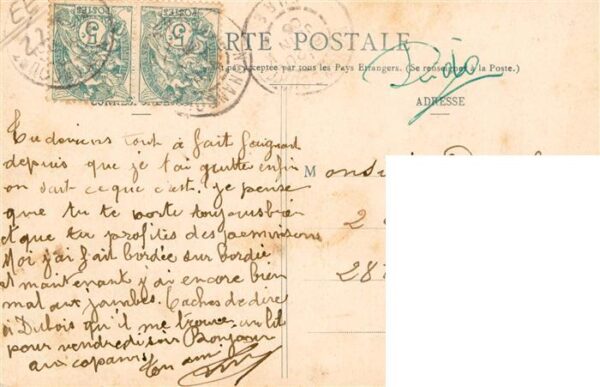 CARTE POSTALE
pas acceptée par tous les Pays Étrangers. (Se renseigner à la Poste.)
ADRESSE
5c
POSTES
5c
POSTES
Tu deviens tout à fait feignant
depuis que je t'ai quitté enfin
on sait ce que c'est. Je pense
que tu te porte toujours bien
et que tu profites des
Moi j'ai fait bordée sur bordée
et maintenant j'ai encore bien
mal aux jambes. Taches de dire
à Dubois qu'il me trouve un lit
pour vendredi soir Bonjour
aux copains Ton ami
M
2
28